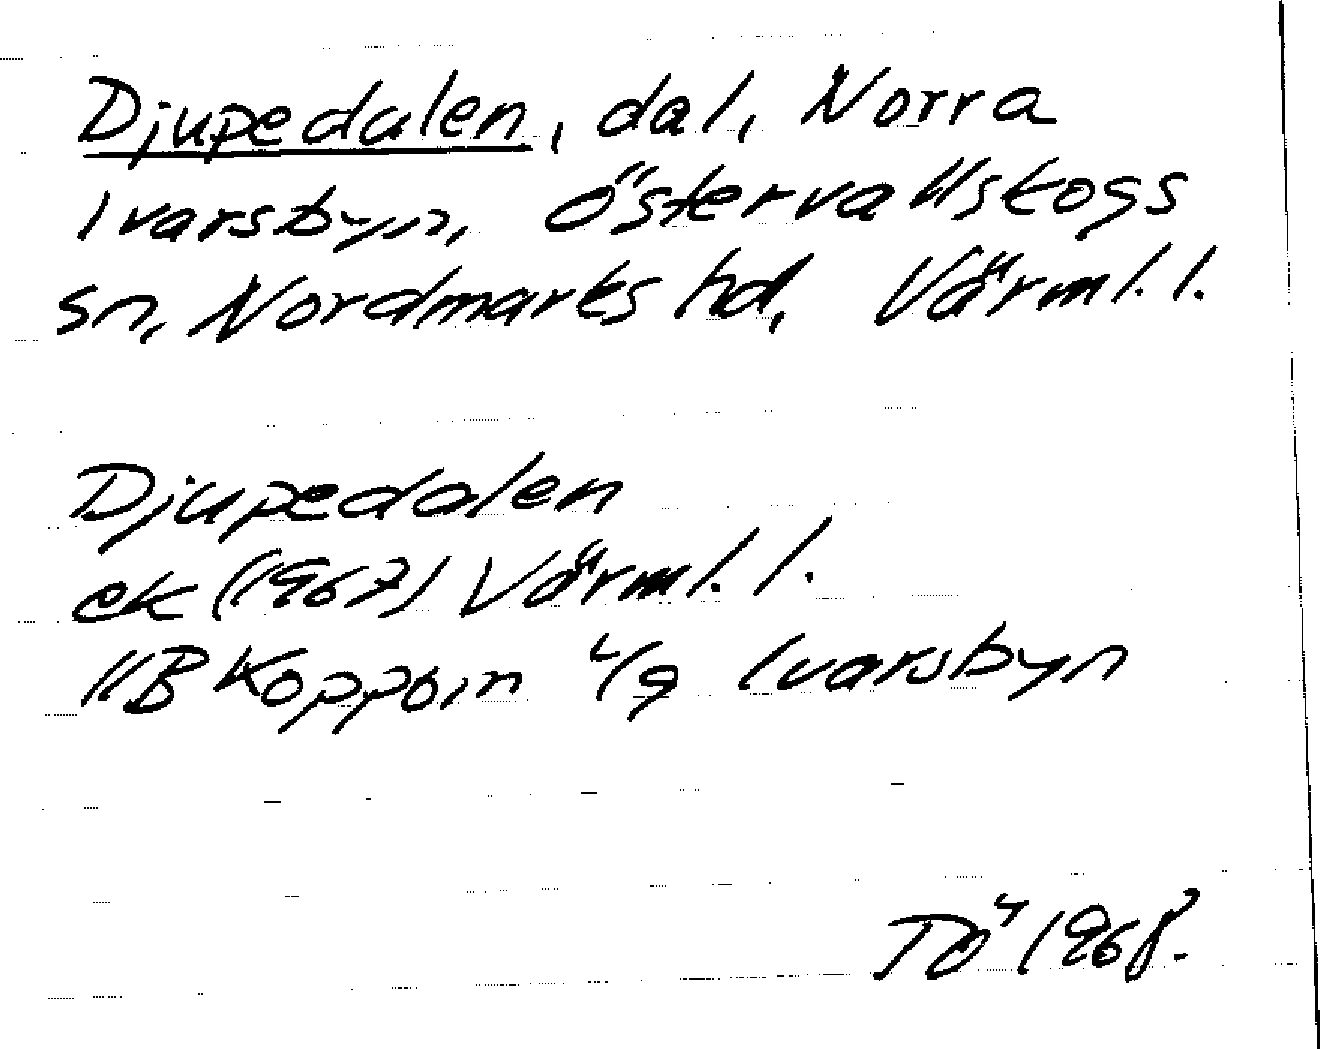 Djupedalen, dal, Norra
Ivarsbyn, Östervallskogs
sn, Nordmarks hd, Värml. l.
Djupedalen
ek (1967) Värml. l.
11B Koppom 4/g Ivarsbyn
TÖ 1968.